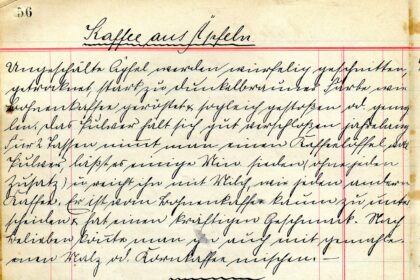 56
Kaffee aus Äpfeln
Ungeschälte Äpfel werden würfelig geschnitten,
getrocknet stark zu dunkelbrauner Farbe wie
Bohnenkaffee geröstet & sogleich gestoßen od. gemah
len. das Pulver hält sich gut verschlossen jahrelang.
Für 2 Tassen nimt man einen Kaffeelöffel voll
Pulver läßt es einige Min sieden (ohne jeden
Zusatz) u reicht ihn mit Milch, wie jeden andern
Kaffee. Er ist vom Bohnenkaffee kaum zu unter
scheiden & hat einen kräftigen Geschmack. Nach
belieben könte man ihn auch mit gemahle
nen Malz od. Kornkaffee mischen. —